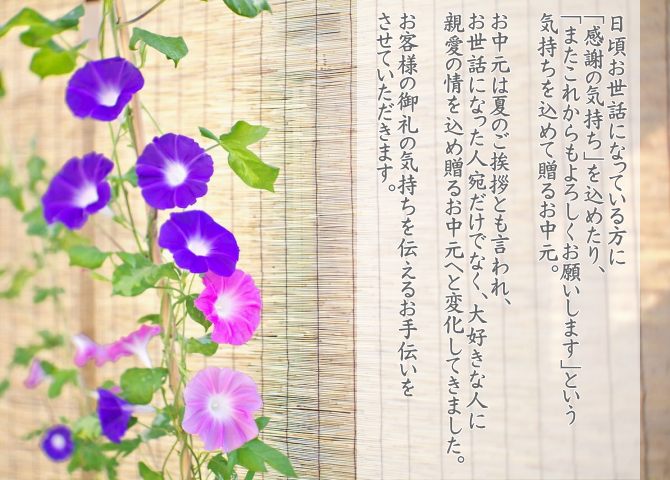 日頃お世話になっている方に
「感謝の気持ち」を込めたり、
「またこれからもよろしくお願いします」という
気持ちを込めて贈るお中元。
お中元は夏のご挨拶とも言われ、
お世話になった人宛だけでなく、大好きな人に
親愛の情を込め贈るお中元へと変化してきました。
お客様の御礼の気持ちを伝えるお手伝いを
させていただきます。